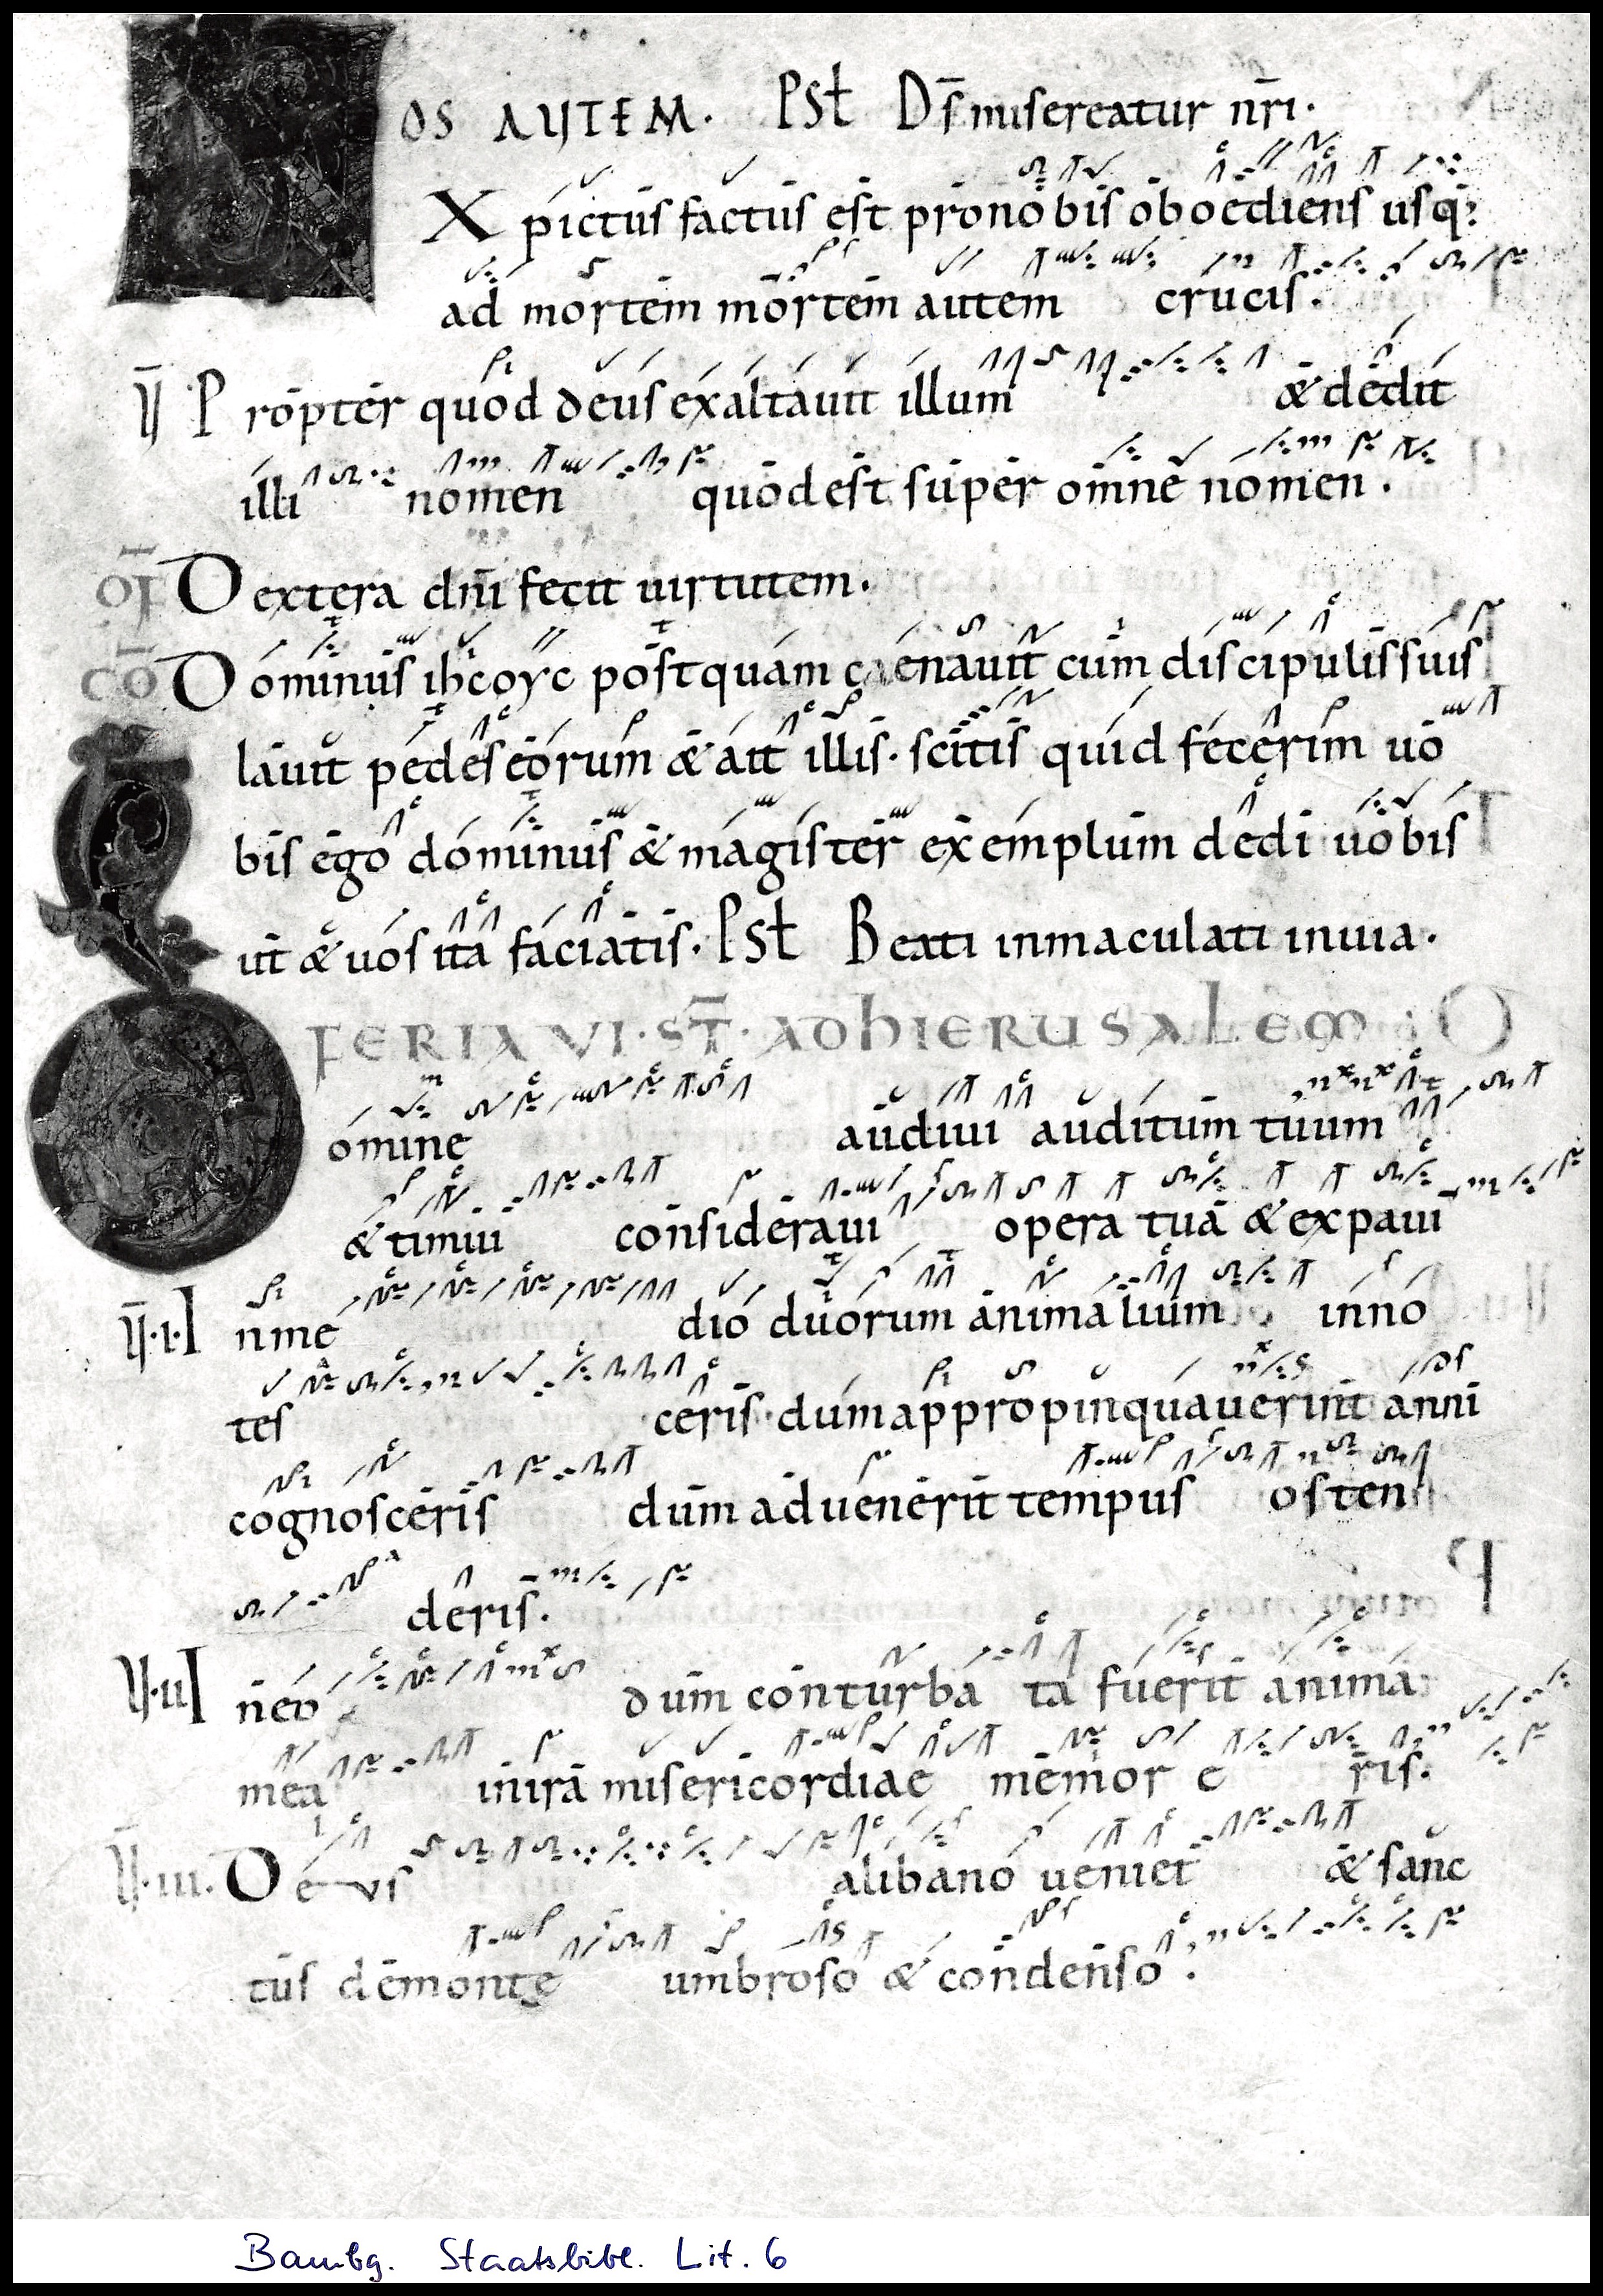 OS AUTEM. PSŁ D̄s misereatur nr̄i.
Xpictus factus est pro nobis oboediens usq;
ad mortem mortem autem crucis.
Propter quod deus exaltauit illum & dedit
illi nomen quod est super omne nomen.
OF Dextera dn̄i fecit uirtutem.
CŌ Dominus ihcoyc postquam caenauit cum discipulis suis
lauit pedes eorum & ait illis. scitis quid fecerim uo
bis ego dominus & magister exemplum dedi uobis
ut & uos ita faciatis. PSŁ Beati inmaculati in uia.
FERIA VI. ST̄. AD HIERUSALEM
omine audiui auditum tuum
& timui consideraui opera tua & expaui
.I. In me dio duorum animalium inno
tes ceris. dum appropinquauerint anni
cognosceris dum aduenerit tempus osten
deris.
.II In eo dum conturba ta fuerit anima
mea in ira misericordiae memor e ris.
.III. Deus a libano ueniet & sanc
tus de monte umbroso & condenso.
Bambg. Staatsbibl. Lit. 6